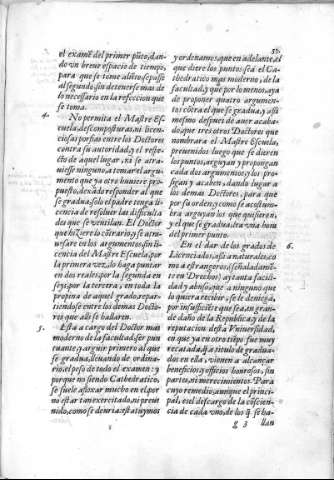 52.
el examẽ del primer pũto, dan-
do vn breue espacio de tiempo,
para que se tome aliẽto se passe
al segundo, sin detenerse mas de
lo necessario en la refeccion que
se toma.
4.
No permita el Mastre Es-
cuela, descomposturas, ni licen-
ciosas porfias entre los Doctores
contra su autoridad, y el respe-
cto de aquel lugar, ni se atra-
uiesse ninguno, a tomar el argu-
mento que ya otro huuiere pro-
puesto, dexãdo responder al que
se gradua, solo el padre tenga li-
cencia de resoluer las dificulta
des que se ventilan. El Doctor
que hiziere lo cõtrario, y se atra-
uesare en los argumentos, sin li-
cencia del Mastre Escuela, por
la primera vez, lo haga puntar
en dos reales, por la segunda en
seys, por la tercera, en toda la
propina de aquel grado, repar-
tiendose entre los demas Docto-
res que alli se hallaren.
5.
Esta a cargo del Doctor mas
moderno de la facultad, ser pun
tuante, y arguir primero al que
se gradua, lleuando de ordina-
rio, el peso de todo el examen: y
porque no siendo Cathedratico,
se suele afloxar mucho en el, por
no estar tan exercitado, ni preue
nido, como se deuria: estatuymos
y ordenamos, que en adelante, el
que diere los puntos, sea el Ca-
thedratico mas moderno, de la
facultad, y que por lo menos, aya
de proponer quatro argumen-
tos cõtra el que se gradua, y assi
mesmo despues de auer acaba-
do, que tres otros Doctores que
nombrara el Mastre Escuela,
preuenidos luego que se dieren
los puntos, arguyan y propongan
cada dos argumentos, y los pro-
sigan y acaben, dando lugar a
los demas Doctores, para que
por su orden, y como se acostum-
bra arguyan los que quisieren,
y el que se gradua, lea vna hora
del primer punto.
6.
En el dar de los grados de
Licenciados, assi a naturales, co
mo a estrangeros (señaladamẽ-
te en Derechos) ay tanta facili-
dad y abuso, que a ninguno que
lo quiera recibir, se le deniega,
por insuficiẽte que sea, en gran-
de daño de la Republica, y de la
reputacion desta Vniuersidad,
en que ya en otro tiẽpo fue muy
recatada, q̃ a titulo de gradua-
dos en ella, vienen a alcançar
beneficios, y officios honrosos, sin
partes, ni merecimientos. Para
cuyo remedio, aunque el princi-
pal, es el descargo de la cõscien-
cia de cada vno, de los q̃ se ha-
g 3 llan